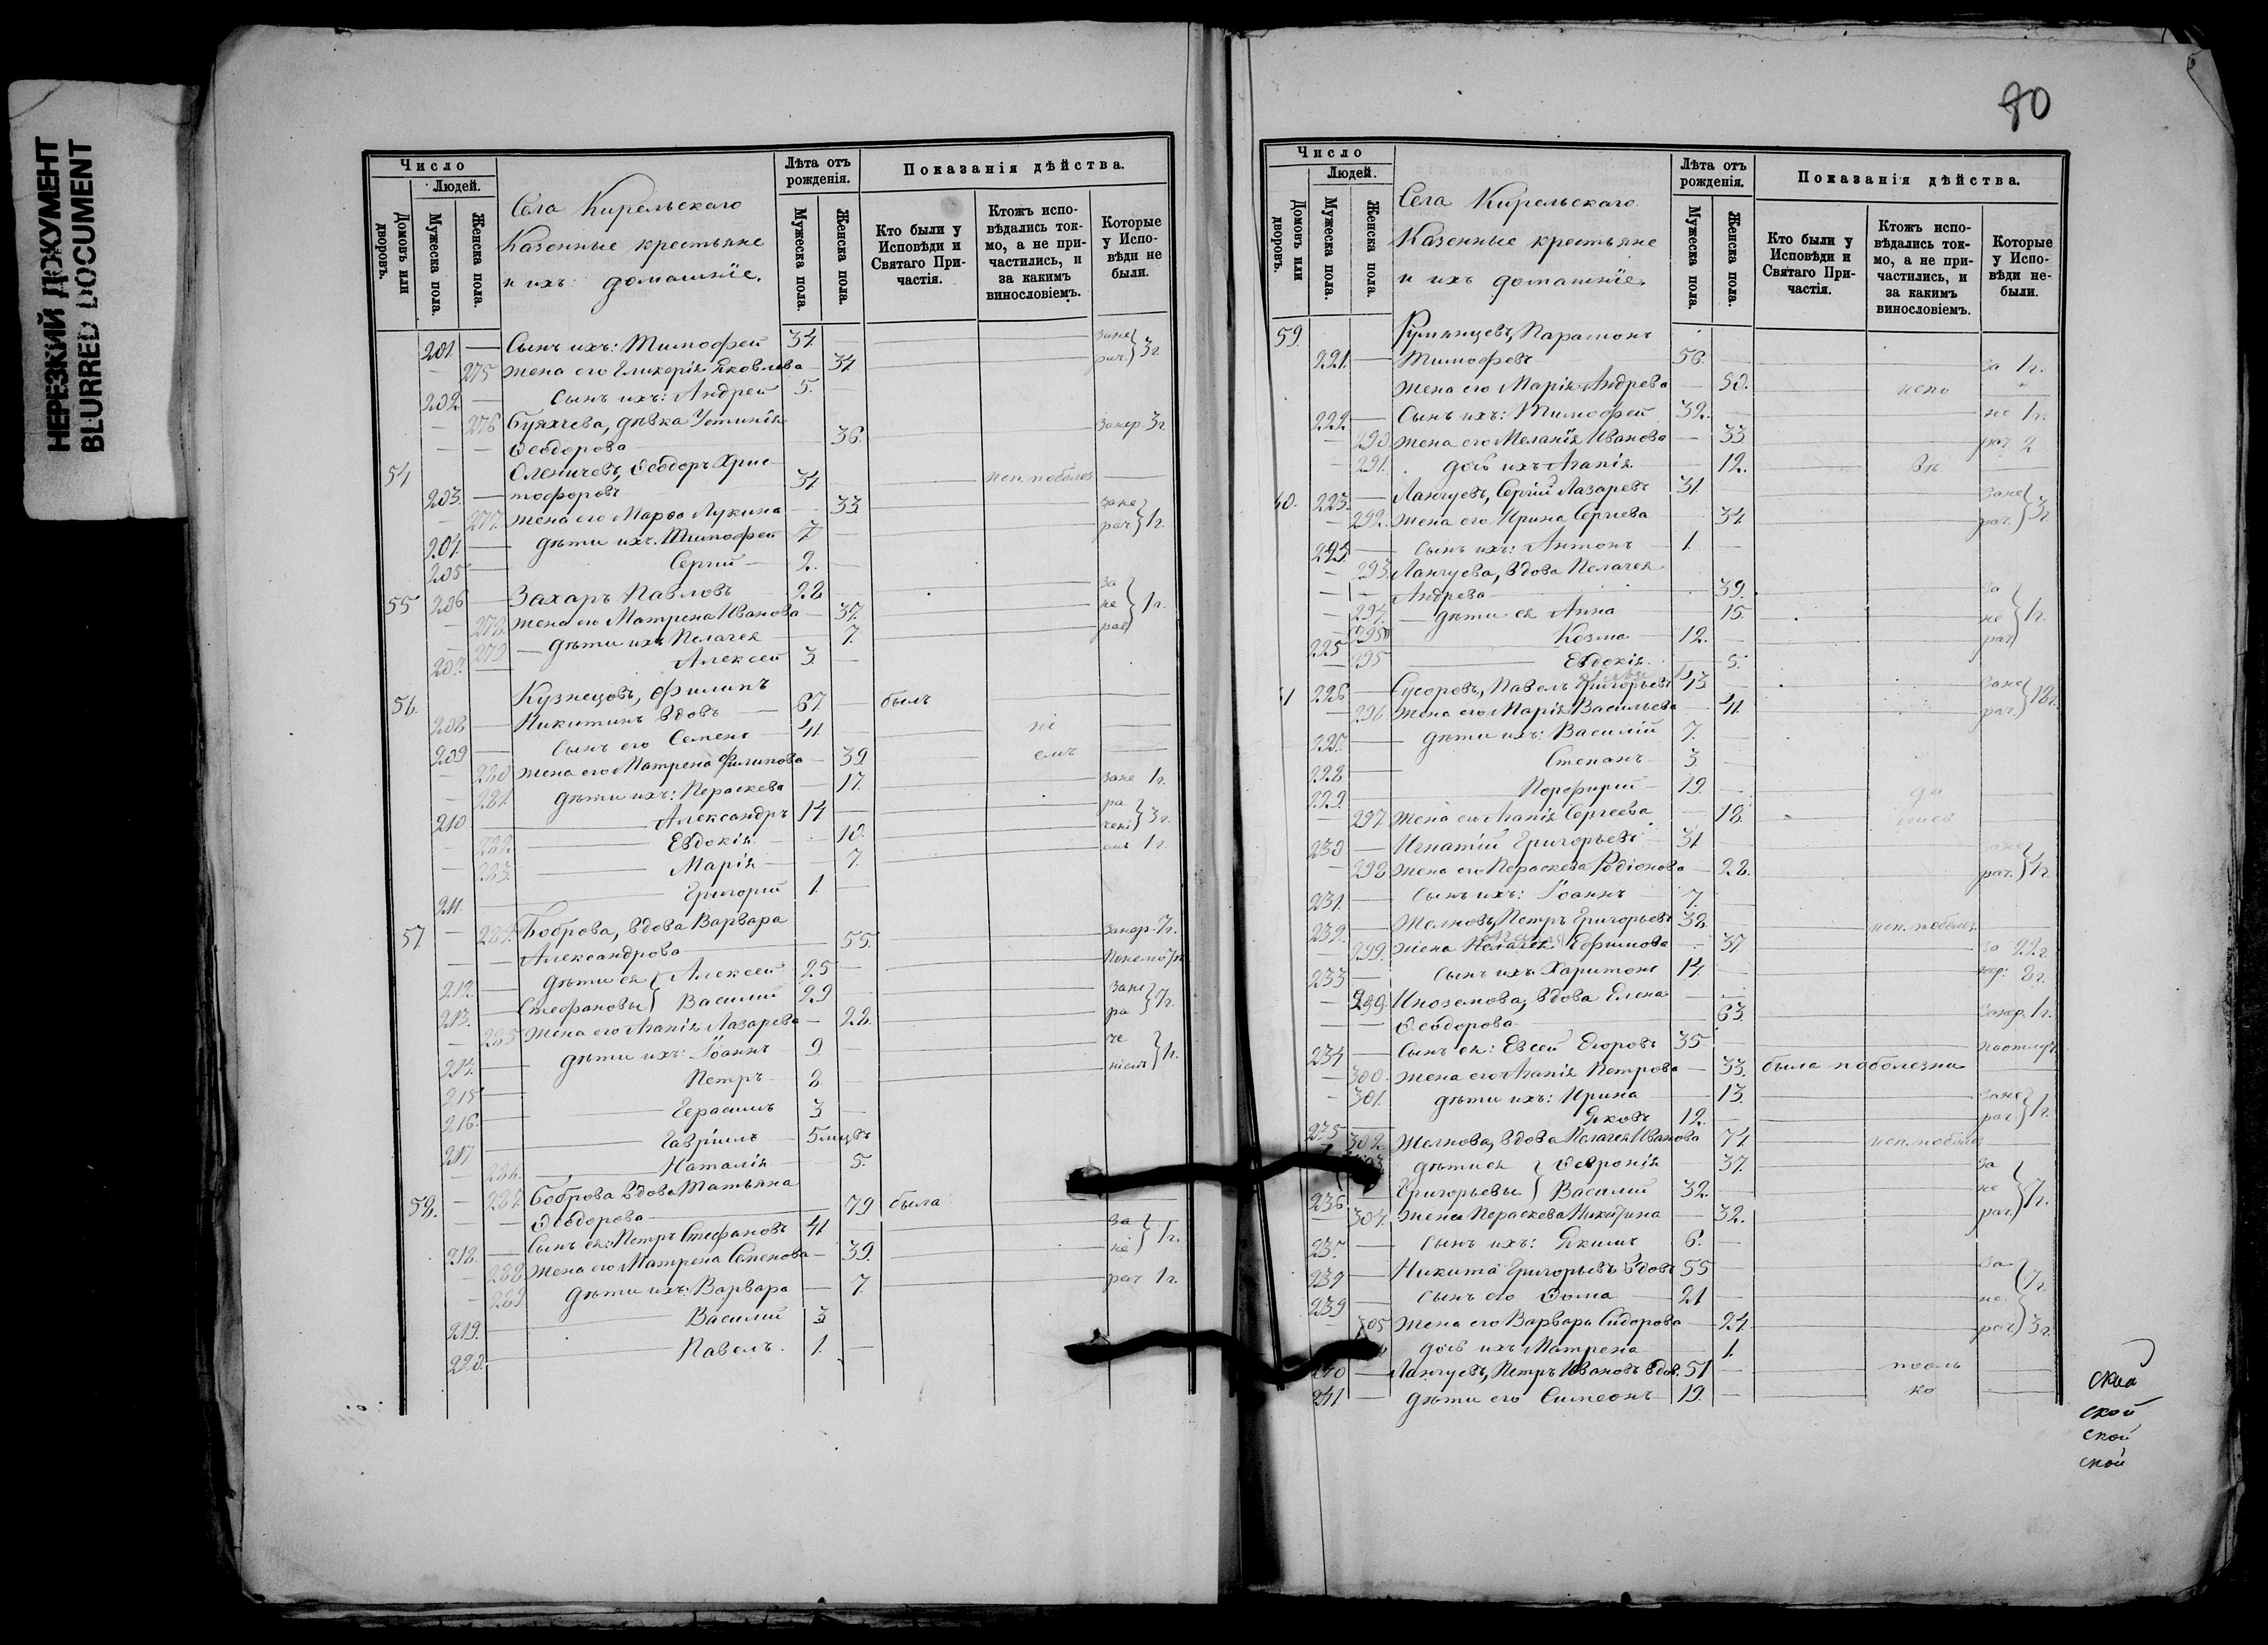 НЕРЕЗКИЙ ДОКУМЕНТ
BLURRED DOCUMENT
Число
Людей.
Домовъ или дворовъ.
Мужеска пола.
Женска пола.
Села Кирельскаго
Казенные крестьяне
и ихъ: домашніе.
Лѣта отъ рожденія.
Мужеска пола.
Женска пола.
Показанія дѣйства.
Кто были у Исповѣди и Святаго Причастія.
Ктожъ исповѣдались токмо, а не причастились, и за какимъ винословіемъ.
Которые у Исповѣди не были.
201. Сынъ ихъ: Тимофей 34. зане
275 жена его Гликерія Яковлева 34 рач. 3 г
202 Сынъ ихъ: Андрей 5.
276 дѣвка Устинія
Ѳеодорова 36. 3 г
54 Ѳеодоръ Хрис-
203. тофоровъ 34
277. жена его Марѳа Лукина 33. зане
204. дѣти ихъ: Тимофей 7 рач 1 г.
205 Сергий 2.
55 206 Захаръ Павловъ 28 за
278. жена его Матрена Иванова 37. не 1 г.
279 дѣти ихъ Пелагея 7. рач
207. Алексей 3
56. Кузнецовъ, Филипъ
208 Никитинъ вдовъ 67 былъ
209 Сынъ его Семенъ 41
280 жена его Матрена Филипова 39
281. дѣти ихъ: Пераскева 17. зане 1 г.
210 Александръ 14 ра
282. Евдокія 10. 3 г.
283. Марія 7. 1 г.
211. Григорий 1.
57. 284. Боброва, вдова Варвара
Александрова 55. 7 г.
212. дѣти ея Алексей 25
213. Стефановы Василий 29 зане
285 жена его Агапія Лазарева 28. ра 7 г.
214. дѣти ихъ: Іоаннъ 9 че
215 Петръ 8 1 г.
216. Герасимъ 3
217 Гавріилъ 5 мцвъ
286. Наталія 5.
58. 287. Боброва вдова Татьяна
Ѳеодорова 79 была
218. Сынъ ея: Петръ Стефановъ 41 за
288 жена его Матрена Семенова 39. не 1 г.
289 дѣти ихъ: Варвара 7. рач 1 г.
219. Василий 3
220. Павелъ 1.
80
Число
Людей.
Домовъ или дворовъ.
Мужеска пола.
Женска пола.
Села Кирельскаго
Казенные крестьяне
и ихъ домашніе.
Лѣта отъ рожденія.
Мужеска пола.
Женска пола.
Показанія дѣйства.
Кто были у Исповѣди и Святаго Причастія.
Ктожъ исповѣдались токмо, а не причастились, и за какимъ винословіемъ.
Которые у Исповѣди не были.
59. Румянцевъ, Парамонъ
221. Тимофевъ 56. за 1 г.
жена его Марія Андрева 50. испо
222 Сынъ ихъ: Тимофей 32. не 1 г.
290. жена его Меланія Иванова 33 рач 2
291. дочь ихъ Агапія 12.
60. 223. Лангуевъ, Сергій Лазаревъ 31. зане
292. жена его Ирина Сергиева 34 рач. 3 г
224 Сынъ ихъ: Антонъ 1.
293. Лангуева, вдова Пелагея
Андрева 39. за
294. дѣти ея Анна 15. не 1 г.
225 Козма 12. рач
295 Евдокія 5.
226 Павелъ Григорьевъ 43 зане
296 жена его Марія Васильева 41. рач. 18 г.
227. дѣти ихъ: Василій 7.
228 Степанъ 3
229. Порофирий 19.
297. жена его Агапія Сергеева 18.
230 Игнатій Григорьевъ 31
298 жена его Пераскева Родіонова 28. рач. 4 г.
231. Сынъ ихъ: Іоаннъ 7.
232. Петръ Григорьевъ 38
299. жена Ефимова 37 за 22 г
233 Сынъ ихъ Харитонъ 14 8 г.
299. Иноземова, вдова Елена
Ѳеодорова 63. 1 г.
234 Сынъ ея: Евсей Егоровъ 35
300. жена его Агапія Петрова 33. была по болезни
301. дѣти ихъ: Ирина 13. зане
235 Яковъ 12. рач 1 г.
302. вдова Пелагея Иванова 74.
дѣти ея Ѳевронія 37. за
236 Григорьевы Василий 32. не 7 г.
304. жена Пераскева Никитина 32. рач
237. Сынъ ихъ: Якимъ 6.
238 Никита Григорьевъ вдовъ 55 за
239 Сынъ его Ѳома 21 не 7 г.
305 жена его Варвара Сидорова 24. рач 3 г.
дочь ихъ Матрена 1.
240 Лангуевъ, Петръ Ивановъ вдов. 51
241 дѣти его Симеонъ 19. ко
ской
ской
ской